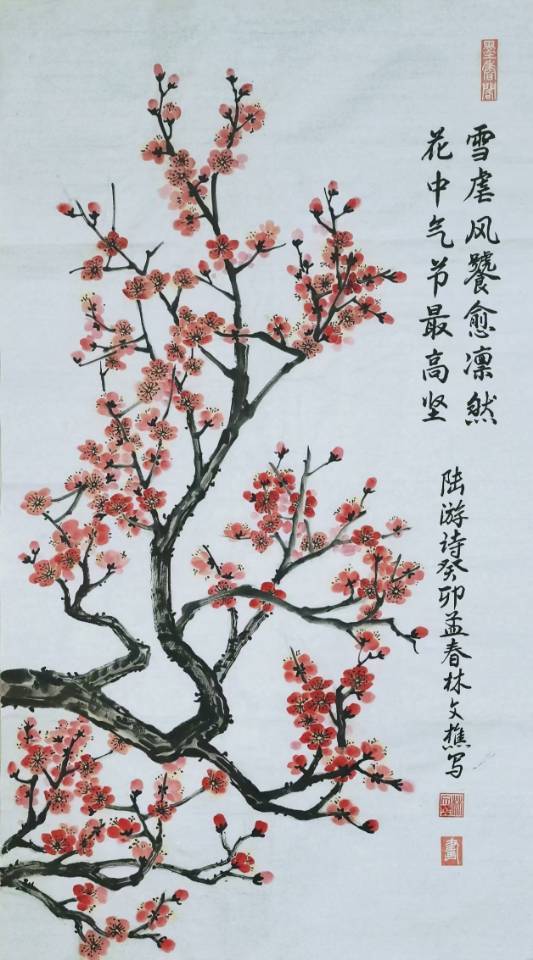 雪虐风饕愈凛然
花中气节最高坚
陆游诗癸卯孟春林文樵写